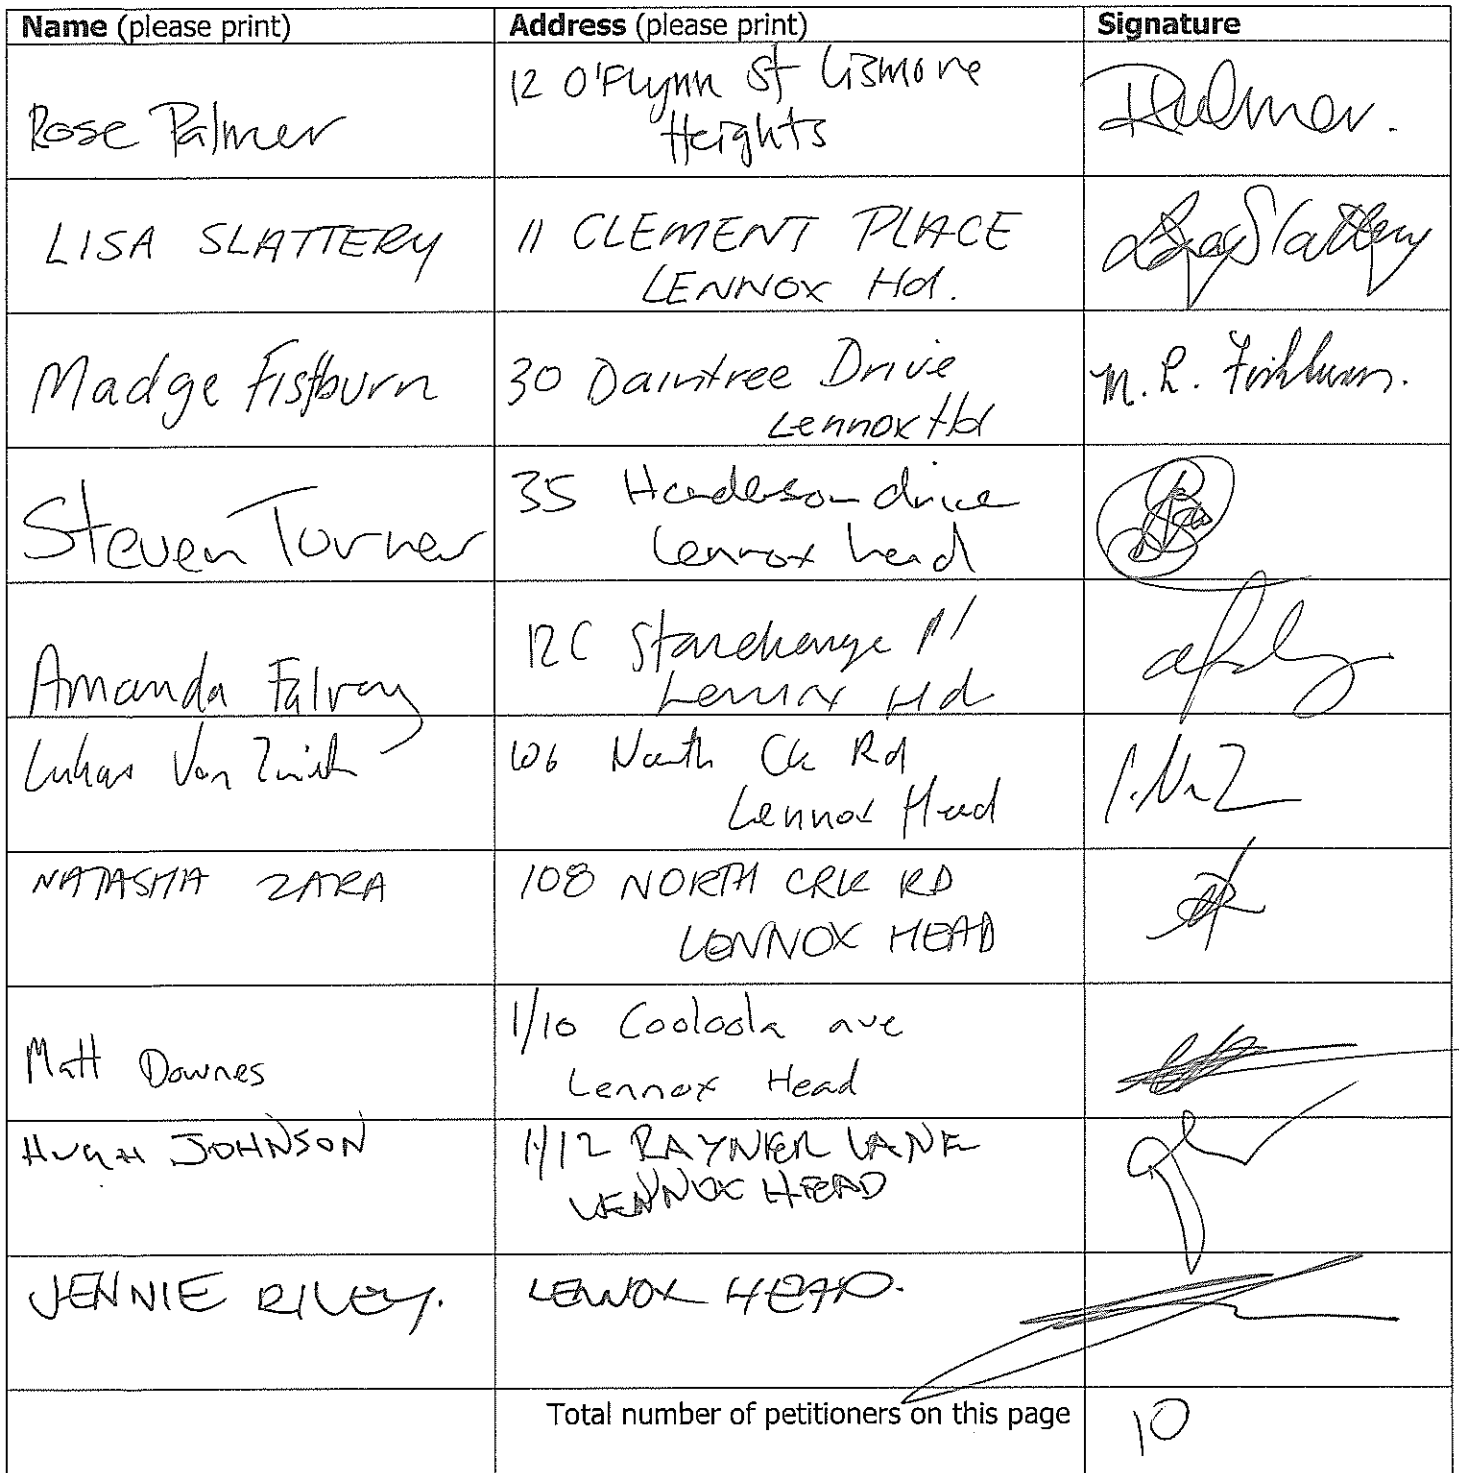 Name (please print) Address (please print) Signature
Rose Palmer
12 O'Flynn St Lismore
Heights
LISA SLATTERY
11 CLEMENT PLACE
LENNOX Hd.
Lisa Slattery
Madge Fishburn
30 Daintree Drive
Lennox Hd
M. L. Fishburn.
Steven Turner
35 Henderson drive
Lennox head
Amanda Falvey
12C Stonehenge Pl
Lennox Hd
Lukas Van
106 North Ck Rd
Lennox Head
NATASHA ZARA
108 NORTH CRK RD
LENNOX HEAD
Matt Downes
1/10 Cooloola ave
Lennox Head
HUGH JOHNSON
1/12 RAYNER LANE
LENNOX HEAD
JENNIE RILEY.
LENNOX HEAD.
Total number of petitioners on this page 10